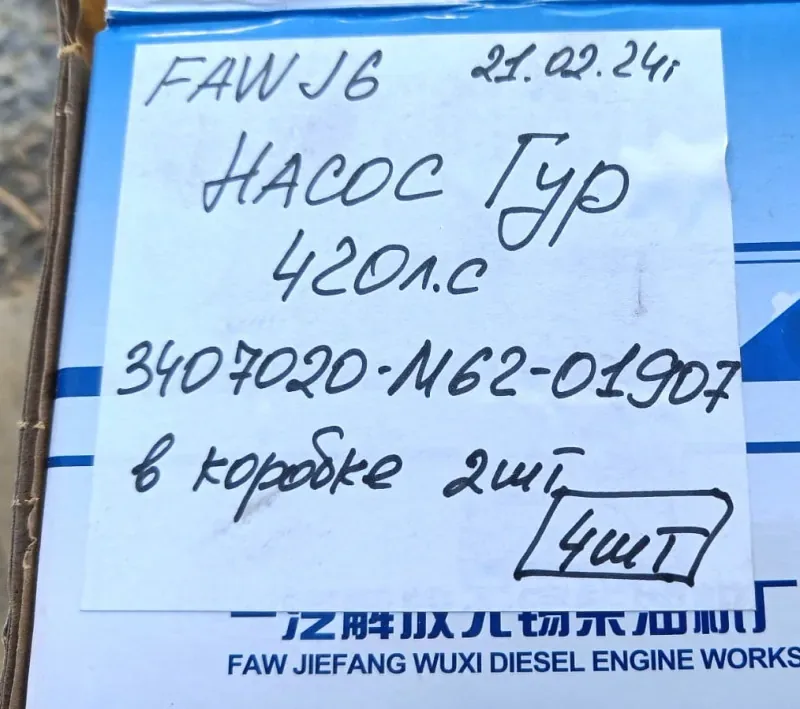 FAW J6 21.02.24г
Насос Гур
420л.с
3407020-М62-01907
в коробке 2шт
4шт
一汽解放无锡柴油机厂
FAW JIEFANG WUXI DIESEL ENGINE WORKS